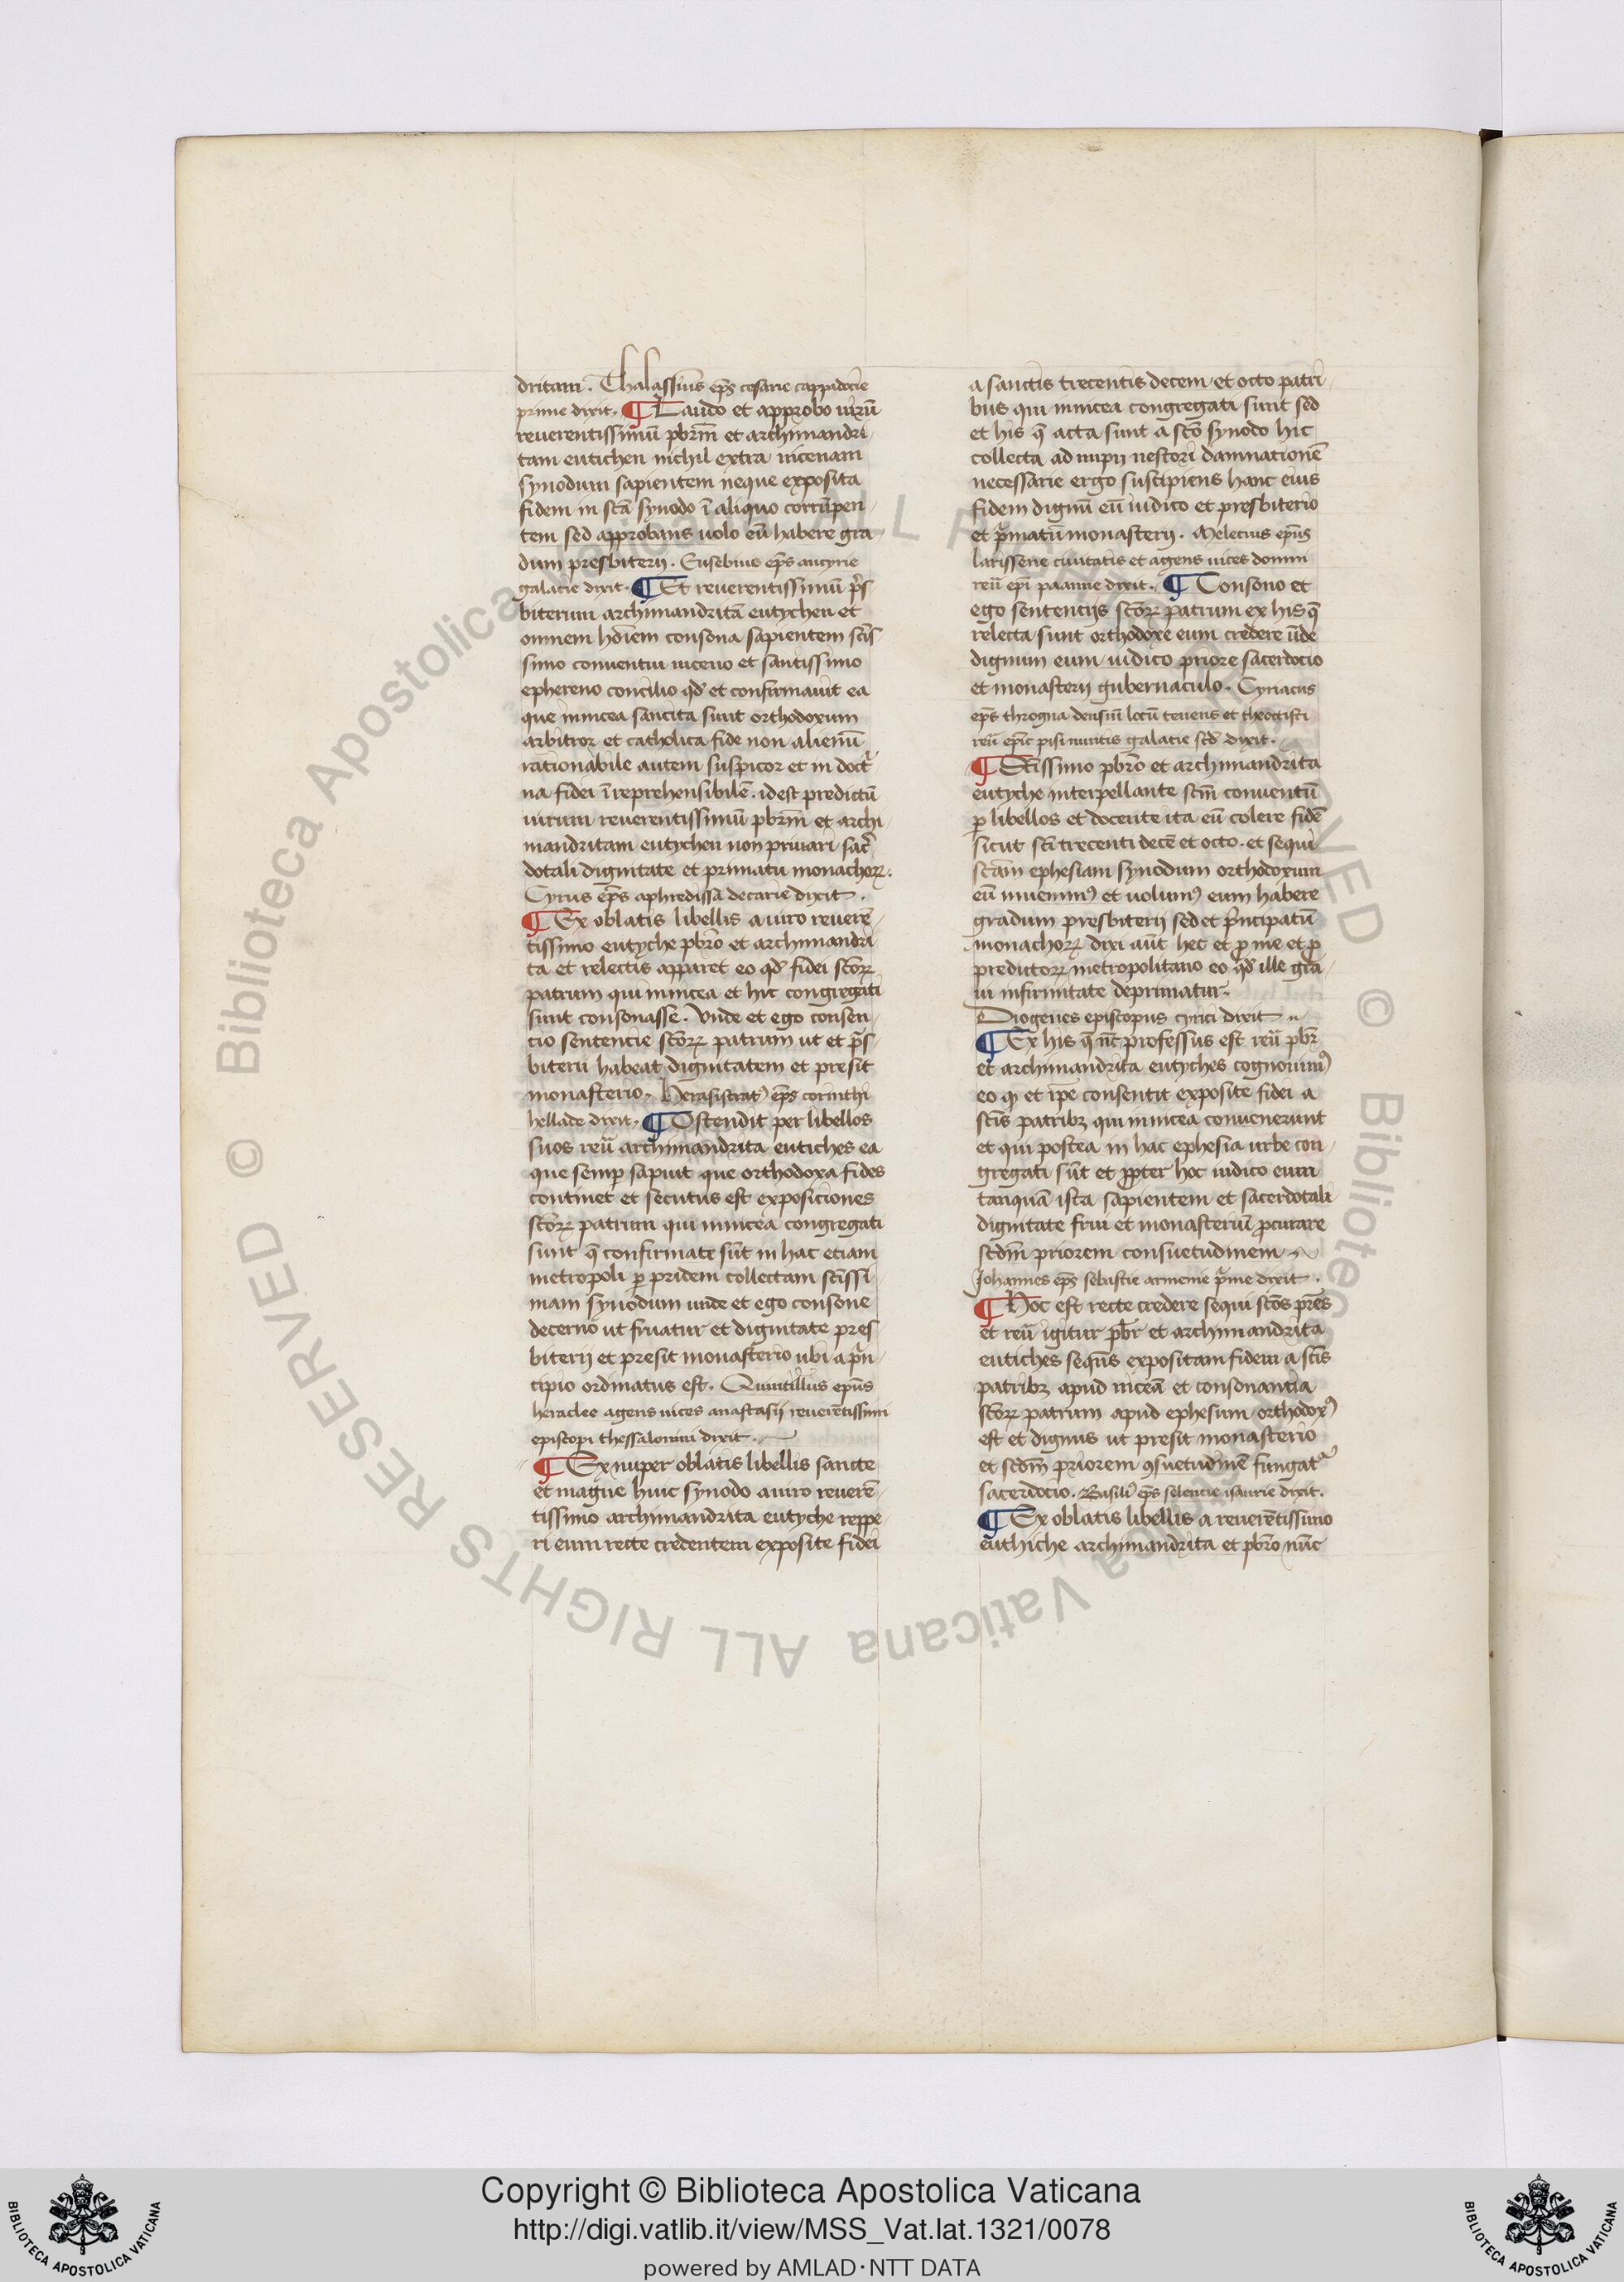 dritam. Thalassius ep̄s cesarie cappadocie
prime dixit. ¶ Laudo et approbo uirū
reuerentissimū pb̄rm et archimandri
tam eutichen nichil extra nicenam
synodum sapientem neque exposita
fidem in sc̄ā synodo ī aliquo corrūpen
tem sed approbans uolo eū habere gra
dum presbiterij. Eusebius ep̄s ancyrie
galacie dixit. ¶ Et reuerentissimū p̄rs
biterum archimandritā eutychen et
omnem
consona sapientem
simo conuentui niceno et santissimo
ephereno concilio qd̄ et confirmauit ea
que in nicea sancita sunt orthodoxum
arbitror et catholica fide non alienū
rationabile autem suspicor et in doctri
na fidei īreprehensibilē. idest predictū
uirum reuerentissimū pb̄rm et archi
mandritam eutychen non priuari sac̄
dotali dignitate et primatu monachoꝝ.
Cyrus ep̄s aphredissa decarie dixit.
¶ Ex oblatis libellis a uiro reuerē
tissimo eutyche pb̄ro et archimandri
ta et relectis apparet eo qd̄ fidei sc̄oꝝ
patrum qui in nicea et hic congregati
sunt consonasse. Vnde et ego consen
cio sentencie sc̄oꝝ patrum ut et p̄rs
biterii habeat dignitatem et presit
monasterio. Herasistratꝰ ep̄s corinthi
hellade dixit. ¶ Ostendit per libellos
suos reū archimandrita eutiches ea
que semꝑ sapuit que orthodoxa fides
continet et secutus est exposiciones
sc̄oꝝ patrum qui in nicea congregati
sunt q̄ confirmate sūt in hac etiam
metropoli ꝑ pridem collectam sc̄issi
mam synodum unde et ego consone
decerno ut fruatur et dignitate pres
biterij et presit monasterio ubi a prin
cipio ordinatus est. Quintillus epūs
heraclee agens uices anastasij reuerētissimi
episcopi thessalonini dixit.
¶ Ex nuper oblatis libellis sancte
et magne huic synodo a uiro reuerē
tissimo archimandrita eutyche reppe
ri eum recte credentem exposite fidei
a sanctis trecentis decem et octo patri
bus qui in nicea congregati sunt sed
et his q̄ acta sunt a sc̄o synodo hic
collecta ad impij nestori damnationē
necessarie ergo suscipiens hanc eius
fidem dignū eū iudico et presbiterio
et p̄matū monasterij. Melecius epūs
larissene ciuitatis et agens uices domni
reū epī paanne dixit. ¶ Consono et
ego sentencijs sc̄oꝝ patrum ex his q̄
relecta sunt orthodoxe eum credere ūde
dignum eum iudico priore sacerdocio
et monasterij gubernaculo. Cyriacus
ep̄s throgna densiū locū tenens et theoctisti
reū ep̄ic pisi nuntis galacie sc̄d dixit.
¶ Sc̄issimo pb̄ro et archimandrita
eutyche interpellante sc̄m conuentū
ꝑ libellos et docente ita eū colere fidē
sicut sc̄i trecenti decē et octo. et sequi
sc̄am ephesiam synodum orthodoxum
eū inuenimꝰ et uolumꝰ eum habere
gradum presbiterij sed et p̄ncipatū
monachoꝝ dixi aūt hec et ꝓ me et ꝓ
predictoꝝ metropolitano eo qd̄ ille gra
ui infirmitate deprimatur.
Diogenes episcopus cyzici dixit
¶ Ex his q̄ nc̄ professus est reū pb̄r
et archimandrita eutyches cognouimꝰ
eo ꝙ et ip̄e consentit exposite fidei a
sc̄is patribꝫ qui in nicea conuenerunt
et qui postea in hac ephesia urbe con
gregati sūt et ꝓpter hoc iudico eum
tanquā ista sapientem et sacerdotali
dignitate frui et monasteriū ꝓcurare
sc̄dm priorem consuetudinem
Johannes ep̄s sebastie armenie p̄me dixit.
¶ Hoc est recte credere sequi sc̄os p̄res
et reū igitur pb̄r et archimandrita
eutiches sequēs expositam fidem a sc̄is
patribꝫ apud niceā et consonantia
sc̄oꝝ patrum apud ephesum orthodoxꝰ
est et dignus ut presit monasterio
et sc̄dm priorem ꝯsuetudinē fungatʳ
sacerdocio. Basiliꝰ ep̄s seleucie isaurie dixit.
¶ Ex oblatis libellis a reuerētissimo
euthiche archimandrita et pb̄ro nūc
Copyright © Biblioteca Apostolica Vaticana
http://digi.vatlib.it/view/MSS_Vat.lat.1321/0078
powered by AMLAD·NTT DATA
© Biblioteca Apostolica Vaticana ALL RIGHTS RESERVED © Biblioteca Apostolica Vaticana ALL RIGHTS RESERVED
BIBLIOTECA APOSTOLICA VATICANA
BIBLIOTECA APOSTOLICA VATICANA